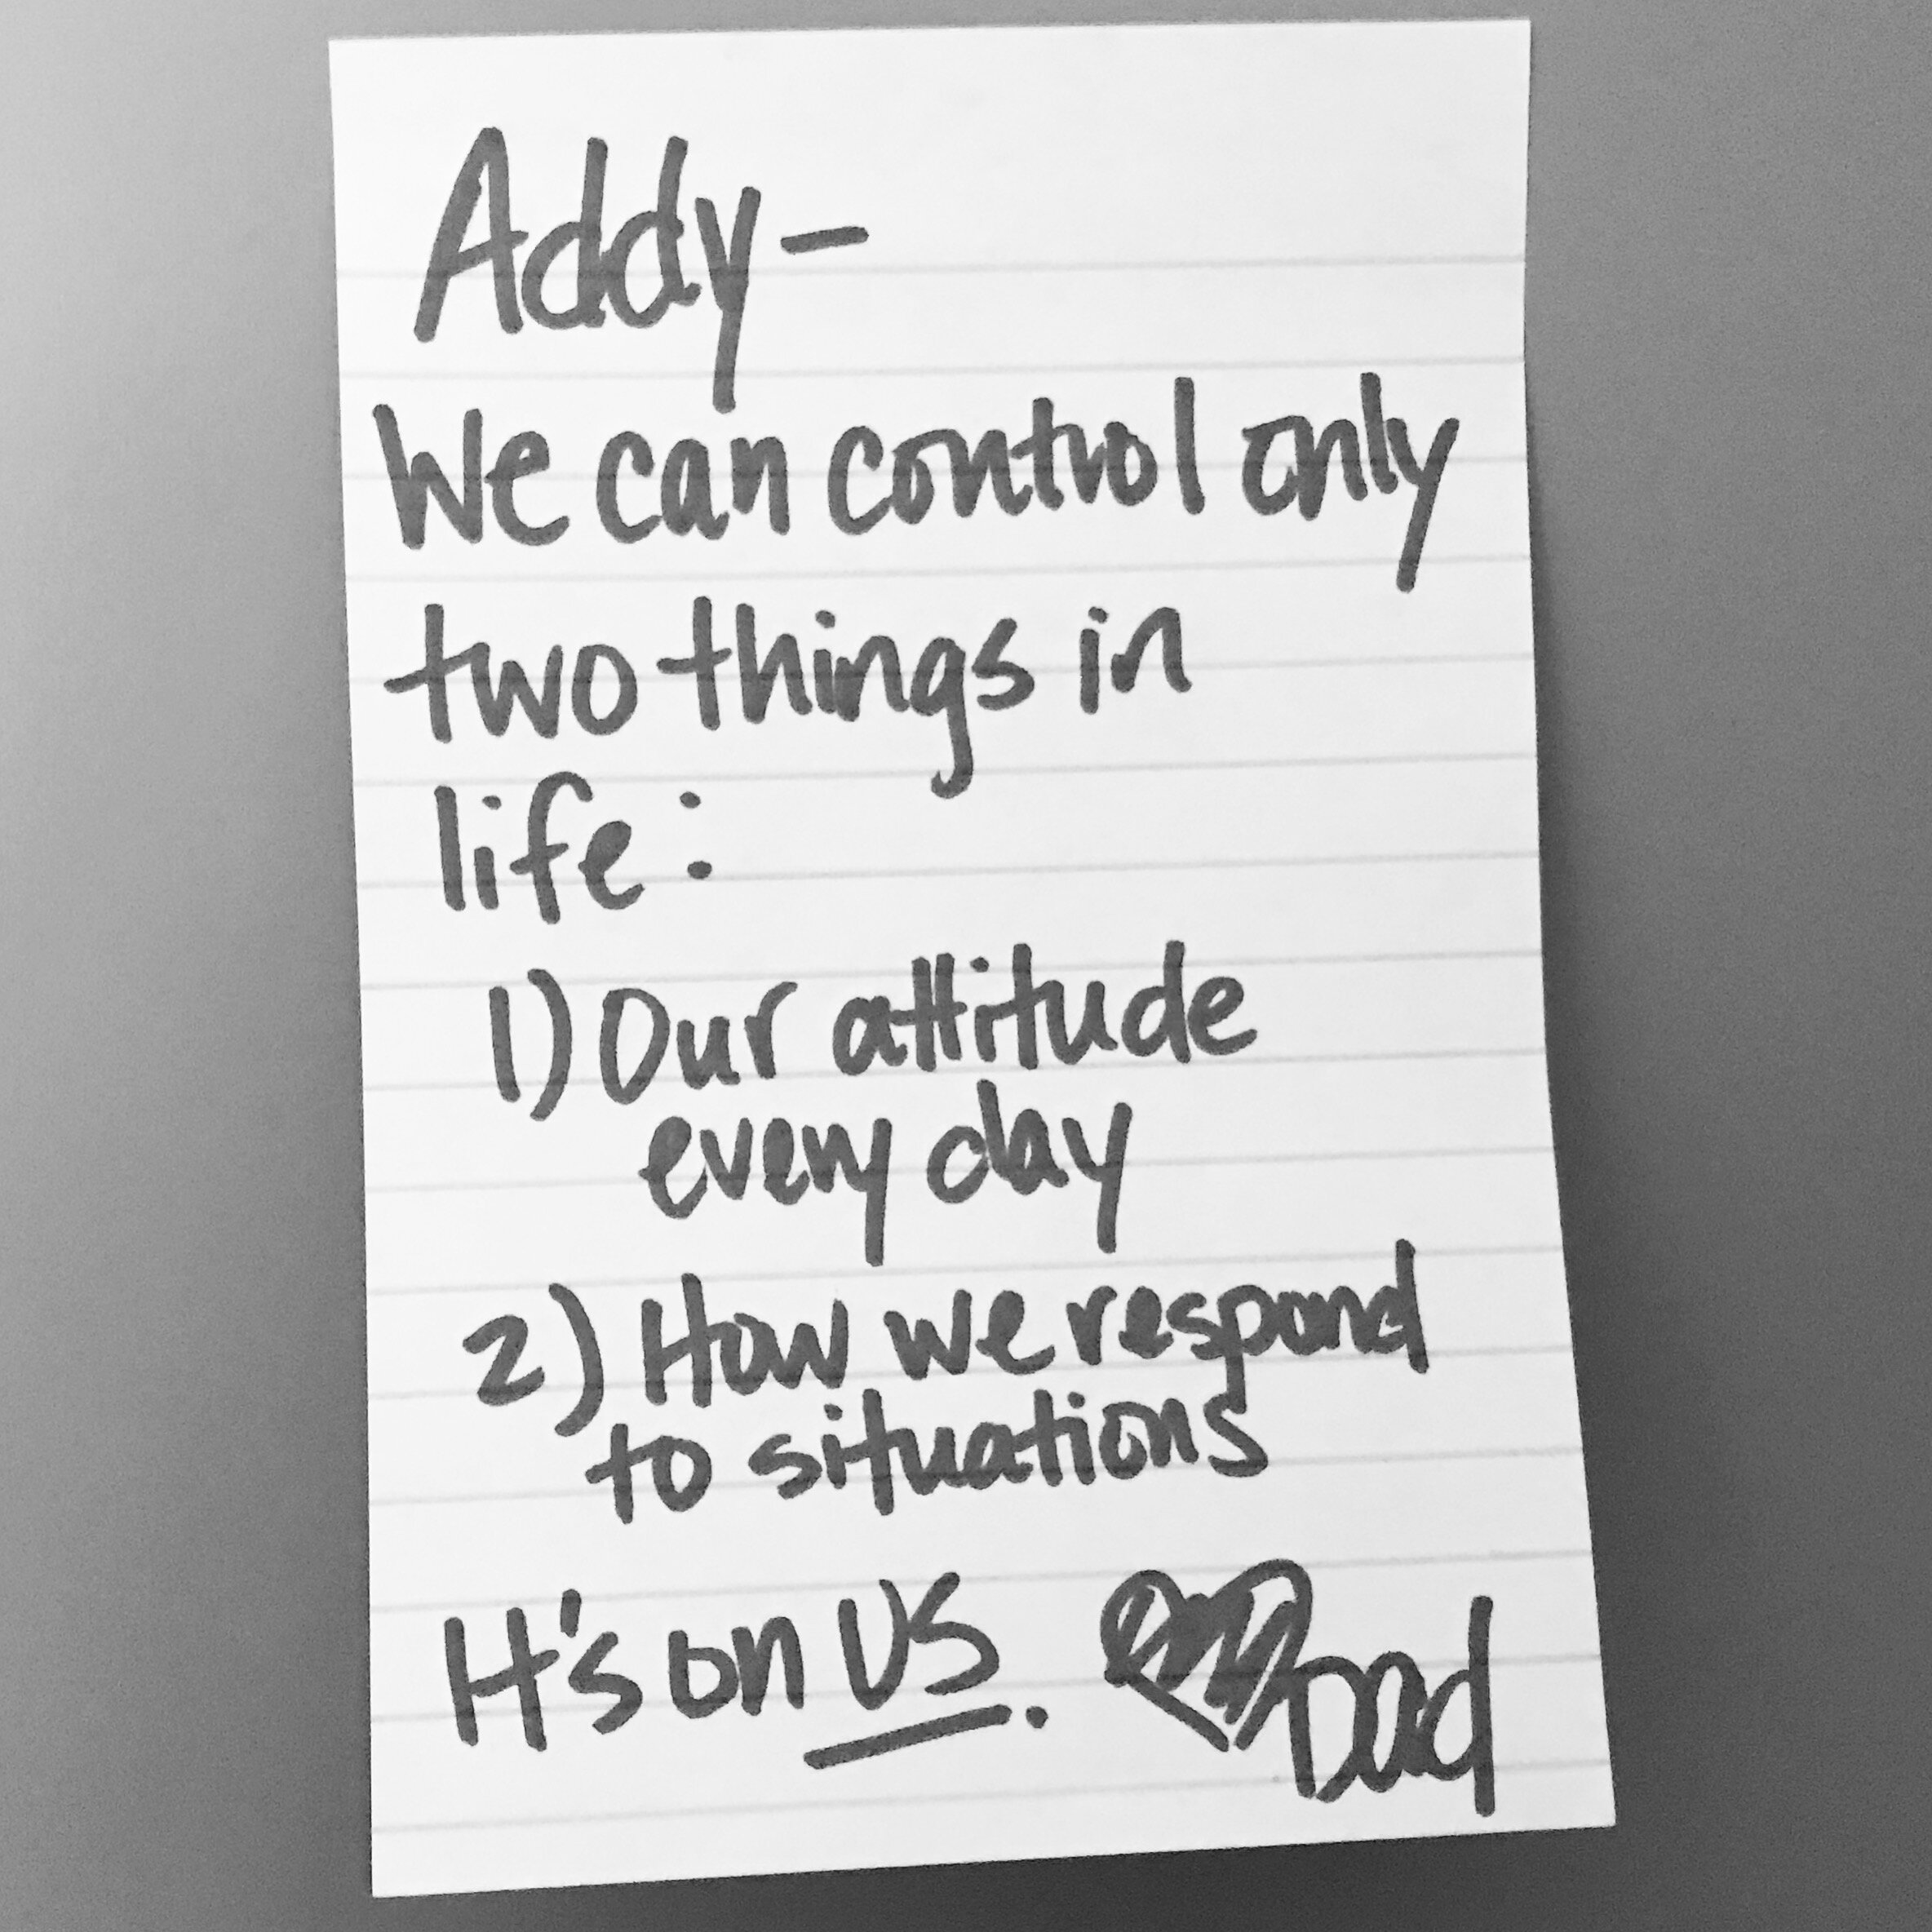 Addy-
We can control only
two things in
life:
1) Our attitude
every day
2) How we respond
to situations
It's on US.
Dad